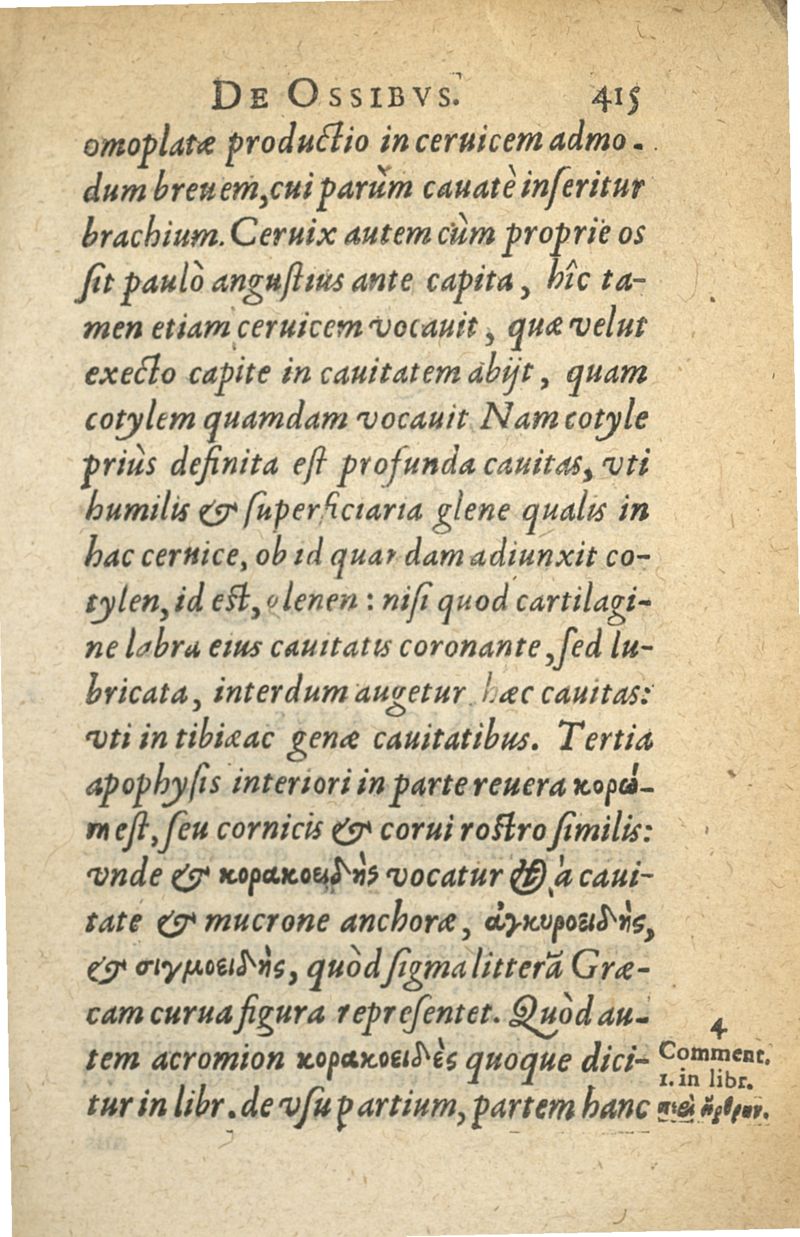 DE OSSIBVS. 415
omoplatæ productio in ceruicem admo-
dum breuem, cui parùm cauatè inſeritur
brachium. Ceruix autem cùm propriè os
ſit paulò anguſtius ante capita, hîc ta-
men etiam ceruicem vocauit, quæ velut
execto capite in cauitatem abijt, quam
cotylem quamdam vocauit Nam cotyle
priùs definita eſt profunda cauitas, vti
humilis & ſuperficiaria glene qualis in
hac ceruice, ob id quandam adiunxit co-
tylen, id eſt, glenen : niſi quod cartilagi-
ne labra eius cauitatis coronante, ſed lu-
bricata, interdum augetur hæc cauitas:
vti in tibiæ ac genæ cauitatibus. Tertia
apophyſis interiori in parte reuera κορώ-
m eſt, ſeu cornicis & corui roſtro ſimilis:
vnde & κορακοειδὴς vocatur & à caui-
tate & mucrone anchoræ, ἀγκυροειδὴς,
& σιγμοειδὴς, quòd ſigma litterā Græ-
cam curua figura repreſentet. Quòd au-
tem acromion κορακοειδὲς quoque dici-
tur in libr. de vſu partium, partem hanc
4
Comment.
1. in libr.
περὶ ἄρθρων.